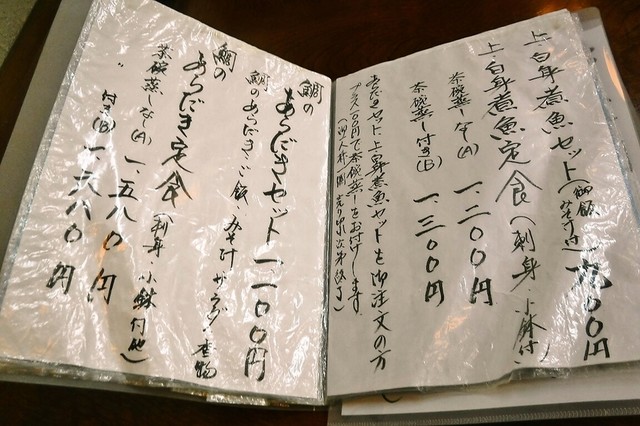 上・白身煮魚セット(御飯 みそ汁付)九〇〇円
上・白身煮魚定食(刺身 小鉢付)
茶碗蒸しなし(A) 一、二〇〇円
茶碗蒸し付き(B) 一、三〇〇円
あらだきセット、上・白身煮魚セットを御注文の方
プラス一〇〇円で茶碗蒸しをお付けします。
鯛の あらだきセット 一、一〇〇円
鯛のあらだき・ご飯・みそ汁 サラダ・香物
鯛の あらだき定食(刺身 小鉢付他)
茶碗蒸しなし(A) 一、五八〇円
〃 付き(B) 一、六八〇円